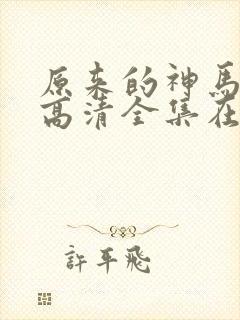 原来的神馬
高清全集在
許平飛